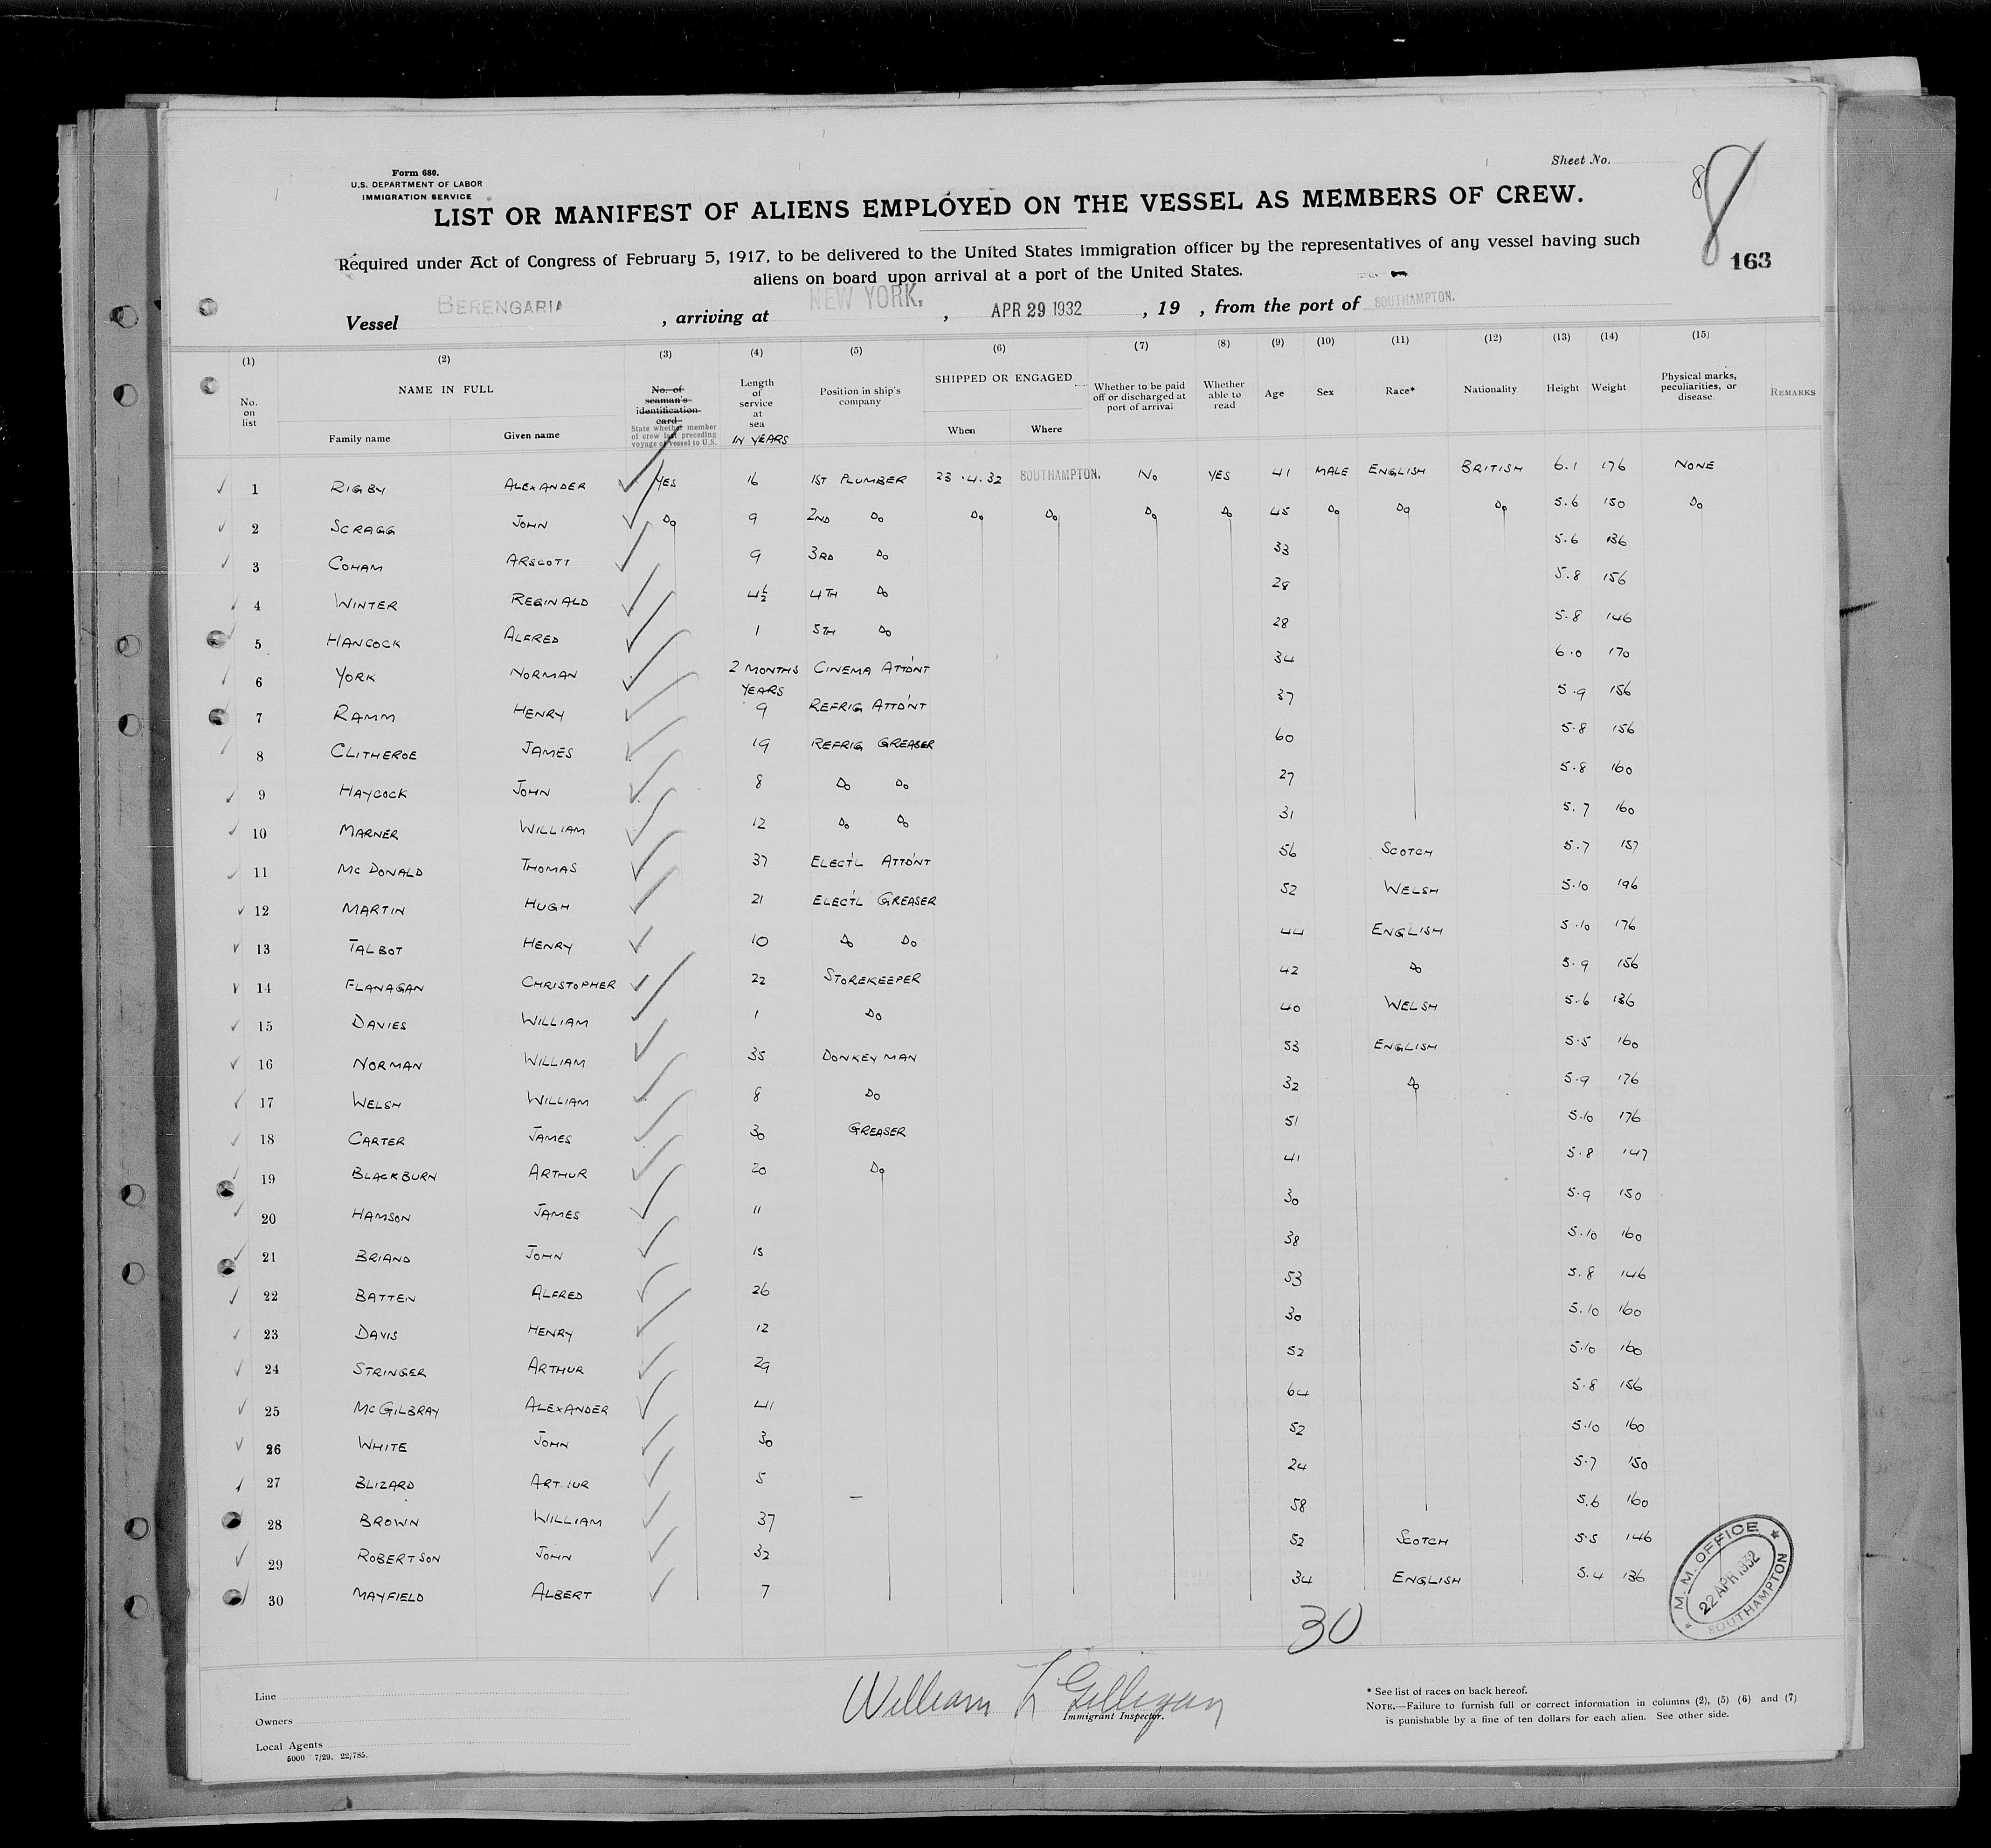 Form 680.
U.S. DEPARTMENT OF LABOR
IMMIGRATION SERVICE
Sheet No.
8
8
163
LIST OR MANIFEST OF ALIENS EMPLOYED ON THE VESSEL AS MEMBERS OF CREW.
Required under Act of Congress of February 5, 1917, to be delivered to the United States immigration officer by the representatives of any vessel having such
aliens on board upon arrival at a port of the United States.
Vessel BERENGARIA , arriving at NEW YORK, , APR 29 1932 , 19 , from the port of SOUTHAMPTON.
(1) (2) (3) (4) (5) (6) (7) (8) (9) (10) (11) (12) (13) (14) (15)
No. on list NAME IN FULL Family name Given name No. of seaman's identification card State whether member of crew last preceding voyage of vessel to U.S. Length of service at sea IN YEARS Position in ship's company SHIPPED OR ENGAGED When Where Whether to be paid off or discharged at port of arrival Whether able to read Age Sex Race* Nationality Height Weight Physical marks, peculiarities, or disease REMARKS
1 RIGBY ALEXANDER YES 16 1ST PLUMBER 23.4.32 SOUTHAMPTON. NO YES 41 MALE ENGLISH BRITISH 6.1 176 NONE
2 SCRAGG JOHN DO 9 2ND DO DO DO DO DO 45 DO DO DO 5.6 150 DO
3 COHAM ARSCOTT 9 3RD DO 33 5.6 136
4 WINTER REGINALD 4½ 4TH DO 28 5.8 156
5 HANCOCK ALFRED 1 5TH DO 28 5.8 146
6 YORK NORMAN 2 MONTHS CINEMA ATTD'NT 34 6.0 170
7 RAMM HENRY YEARS 9 REFRIG ATTD'NT 37 5.9 156
8 CLITHEROE JAMES 19 REFRIG GREASER 60 5.8 156
9 HAYCOCK JOHN 8 DO DO 27 5.8 160
10 MARNER WILLIAM 12 DO DO 31 5.7 160
11 MC DONALD THOMAS 37 ELECT'L ATTD'NT 56 SCOTCH 5.7 157
12 MARTIN HUGH 21 ELECT'L GREASER 52 WELSH 5.10 196
13 TALBOT HENRY 10 DO DO 44 ENGLISH 5.10 176
14 FLANAGAN CHRISTOPHER 22 STOREKEEPER 42 DO 5.9 156
15 DAVIES WILLIAM 1 DO 40 WELSH 5.6 136
16 NORMAN WILLIAM 35 DONKEYMAN 53 ENGLISH 5.5 160
17 WELSH WILLIAM 8 DO 32 DO 5.9 176
18 CARTER JAMES 30 GREASER 51 5.10 176
19 BLACKBURN ARTHUR 20 DO 41 5.8 147
20 HAMSON JAMES 11 30 5.9 150
21 BRIAND JOHN 15 38 5.10 160
22 BATTEN ALFRED 26 53 5.8 146
23 DAVIS HENRY 12 30 5.10 160
24 STRINGER ARTHUR 29 52 5.10 160
25 MCGILBRAY ALEXANDER 41 64 5.8 156
26 WHITE JOHN 30 52 5.10 160
27 BLIZARD ARTHUR 5 24 5.7 150
28 BROWN WILLIAM 37 58 5.6 160
29 ROBERTSON JOHN 32 52 SCOTCH 5.5 146
30 MAYFIELD ALBERT 7 34 ENGLISH 5.4 136
30
M. M. OFFICE
22 APR 1932
SOUTHAMPTON
Line
Owners
Local Agents
5000 7/29. 22/785.
William L Gilligan
Immigrant Inspector.
* See list of races on back hereof.
NOTE.—Failure to furnish full or correct information in columns (2), (5) (6) and (7)
is punishable by a fine of ten dollars for each alien. See other side.